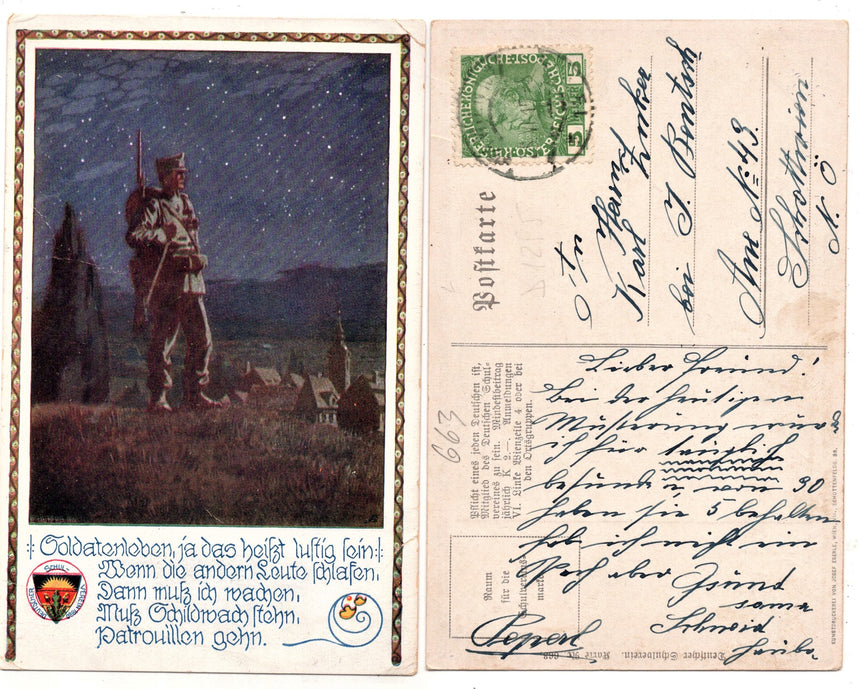 Soldatenleben, ja das heißt lustig sein:
Wenn die andern Leute schlafen,
Dann muß ich wachen,
Muß Schildwach stehn,
Patrouillen gehn.
SCHUL-
VEREIN
DEUTSCHER
5
5
Postkarte
D1215
663
Herrn
Karl
bei J. Bentsch
No 43.
Schottwien
N. Ö
Pflicht eines jeden Deutschen ist,
Mitglied des Deutschen Schul-
vereines zu sein. Mindestbeitrag
jährlich K 2.—. Anmeldungen
VI. Linke Wienzeile 4 oder bei
den Ortsgruppen.
Raum
für die
Schulvereins-
marke
Lieber Freund!
Bei der heutigen
Musterung wur
ich für tauglich
befunden, von 30
haben sie 5 behalten
hab ich nicht ein
aber
Peperl
Deutscher Schulverein. Karte Nr. 663
KUNSTDRUCKEREI VON JOSEF EBERLE, WIEN, VII., SCHOTTENFELDG. 38.